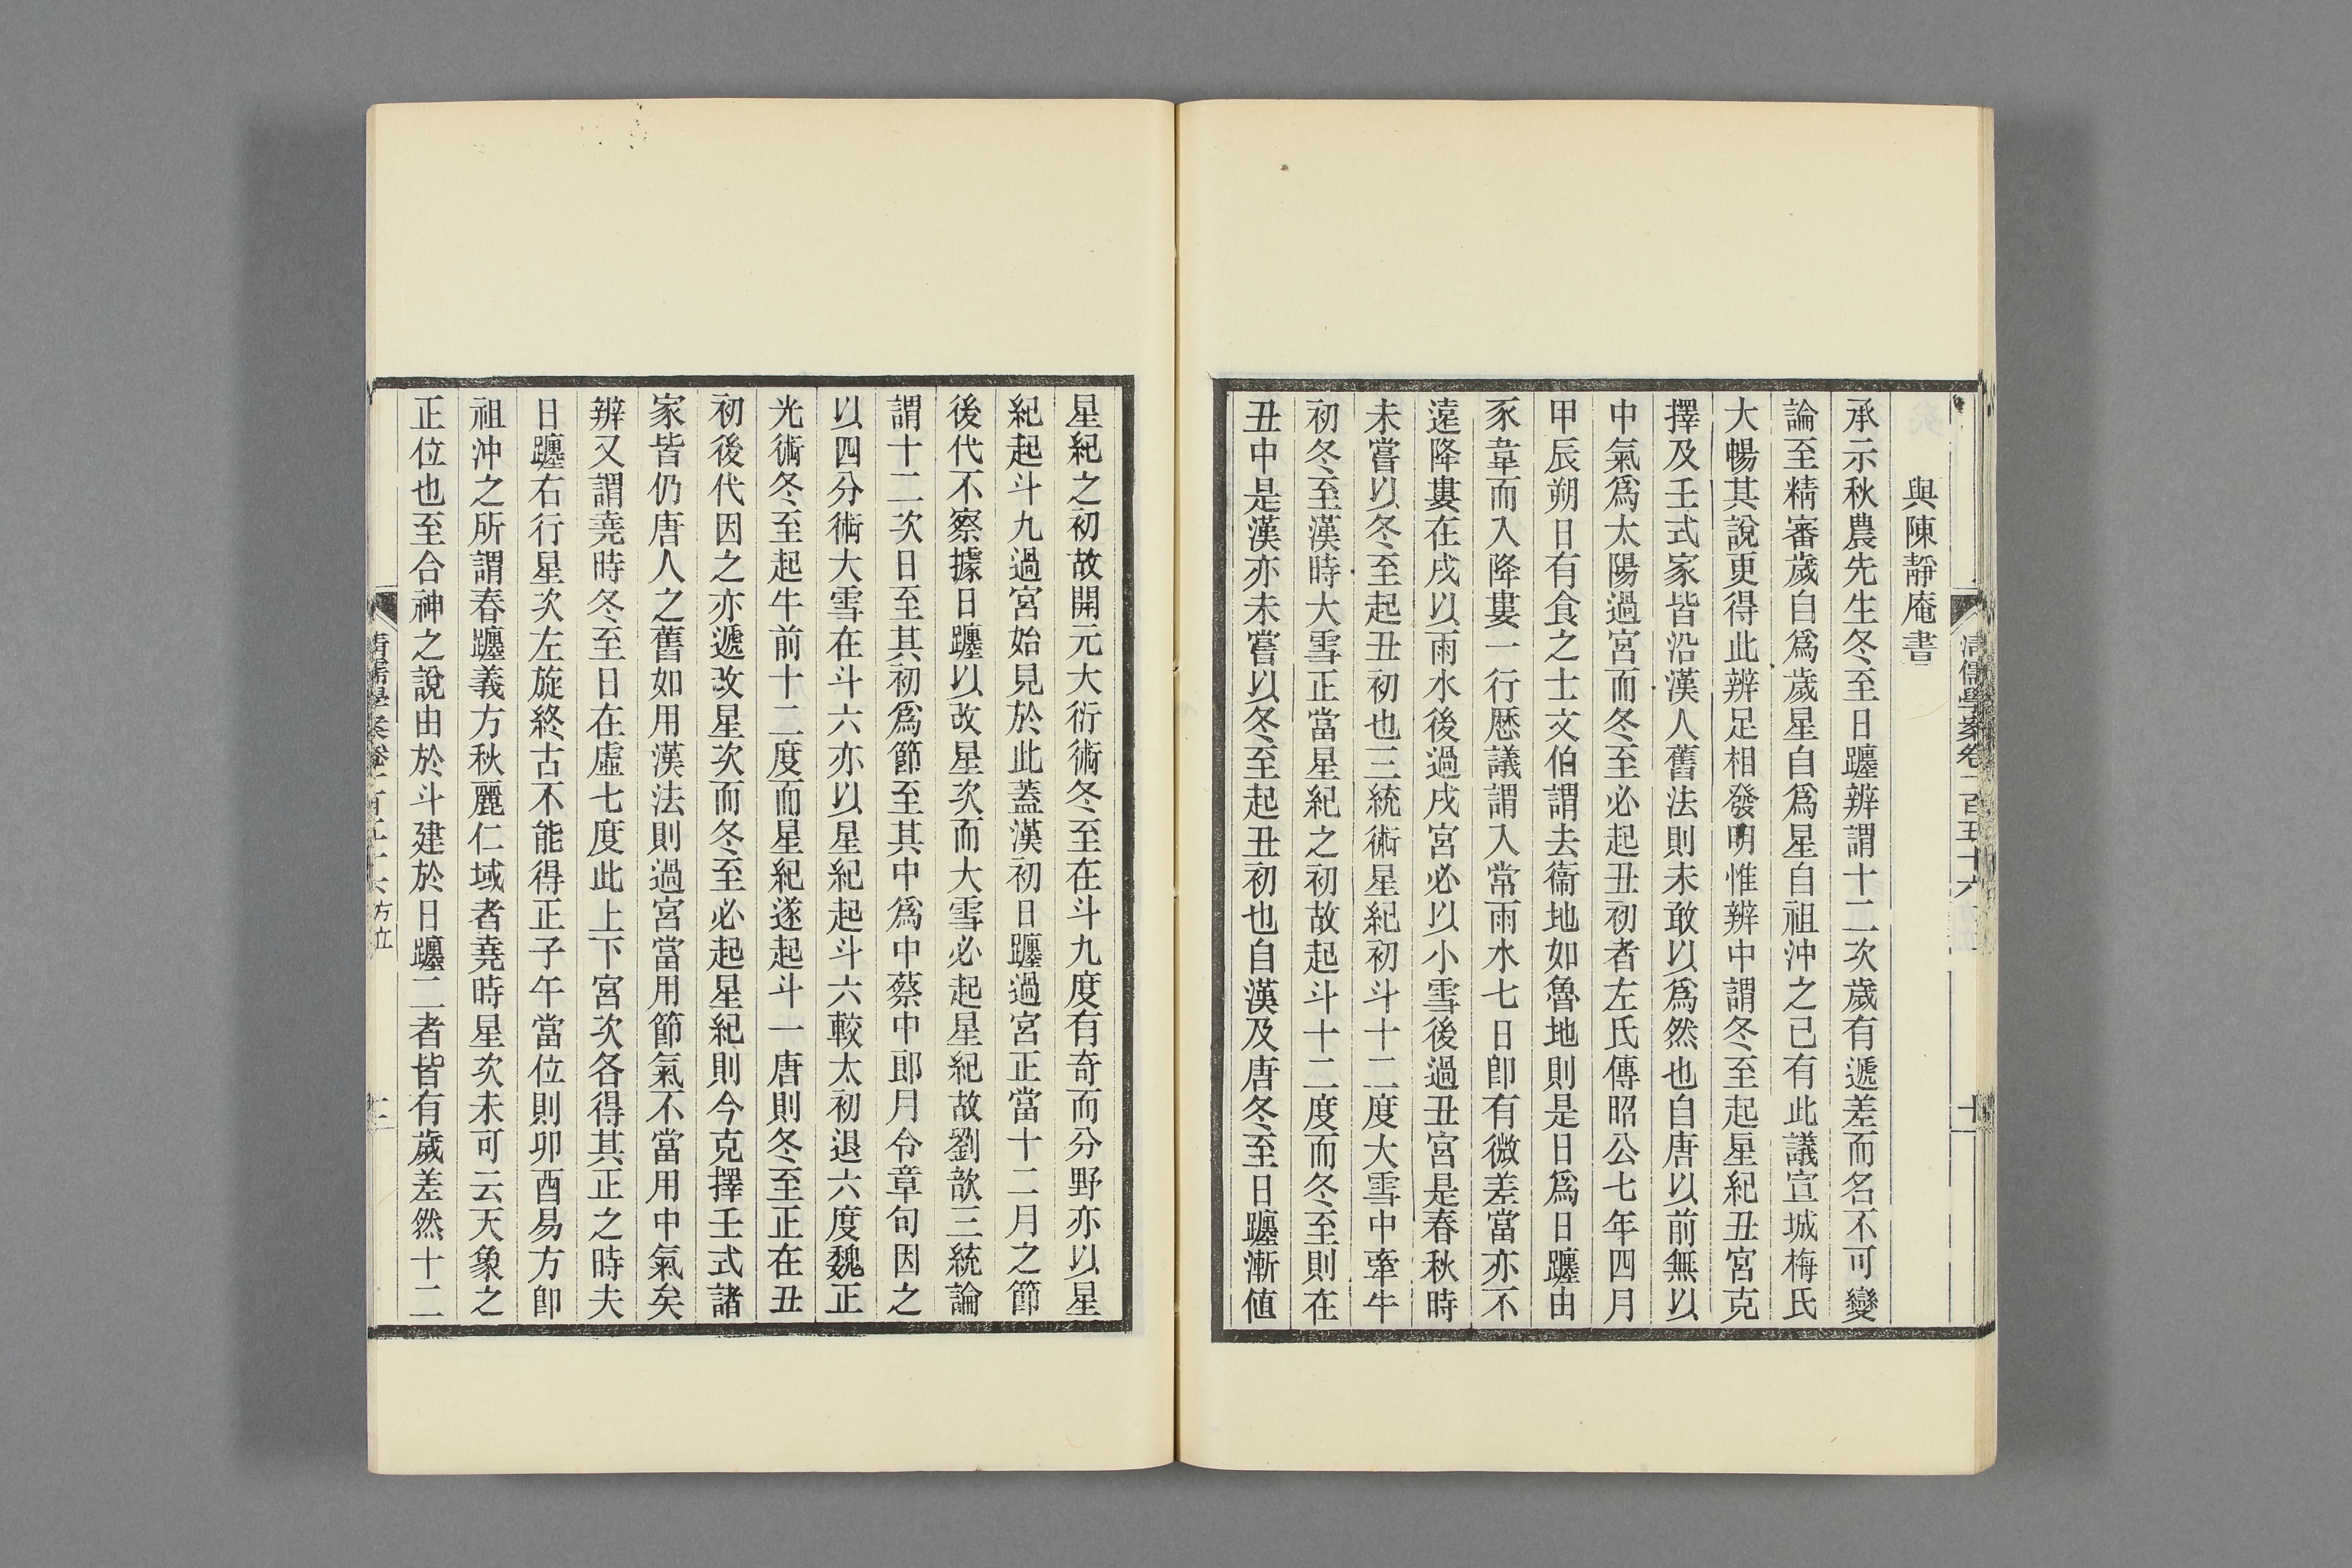 與陳靜庵書
承示秋農先生冬至日躔辨謂十二次歲有遞差而名不可變
論至精審歲自爲歲星自爲星自祖沖之已有此議宣城梅氏
大暢其說更得此辨足相發明惟辨中謂冬至起星紀丑宮克
擇及壬式家皆沿漢人舊法則未敢以爲然也自唐以前無以
中氣爲太陽過宮而冬至必起丑初者左氏傳昭公七年四月
甲辰朔日有食之士文伯謂去衞地如魯地則是日爲日躔由
豕韋而入降婁一行厯議謂入常雨水七日卽有微差當亦不
遠降婁在戌以雨水後過戌宮必以小雪後過丑宮是春秋時
未嘗以冬至起丑初也三統術星紀初斗十二度大雪中牽牛
初冬至漢時大雪正當星紀之初故起斗十二度而冬至則在
丑中是漢亦未嘗以冬至起丑初也自漢及唐冬至日躔漸値
星紀之初故開元大衍術冬至在斗九度有奇而分野亦以星
紀起斗九過宮始見於此蓋漢初日躔過宮正當十二月之節
後代不察據日躔以改星次而大雪必起星紀故劉歆三統論
謂十二次日至其初爲節至其中爲中蔡中郎月令章句因之
以四分術大雪在斗六亦以星紀起斗六較太初退六度魏正
光術冬至起牛前十二度而星紀遂起斗一唐則冬至正在丑
初後代因之亦遞改星次而冬至必起星紀則今克擇壬式諸
家皆仍唐人之舊如用漢法則過宮當用節氣不當用中氣矣
辨又謂堯時冬至日在虛七度此上下宮次各得其正之時夫
日躔右行星次左旋終古不能得正子午當位則卯酉易方卽
祖沖之所謂春躔義方秋麗仁域者堯時星次未可云天象之
正位也至合神之說由於斗建於日躔二者皆有歲差然十二
清儒學案卷一百五十六
十
清儒學案卷一百五十六 方立